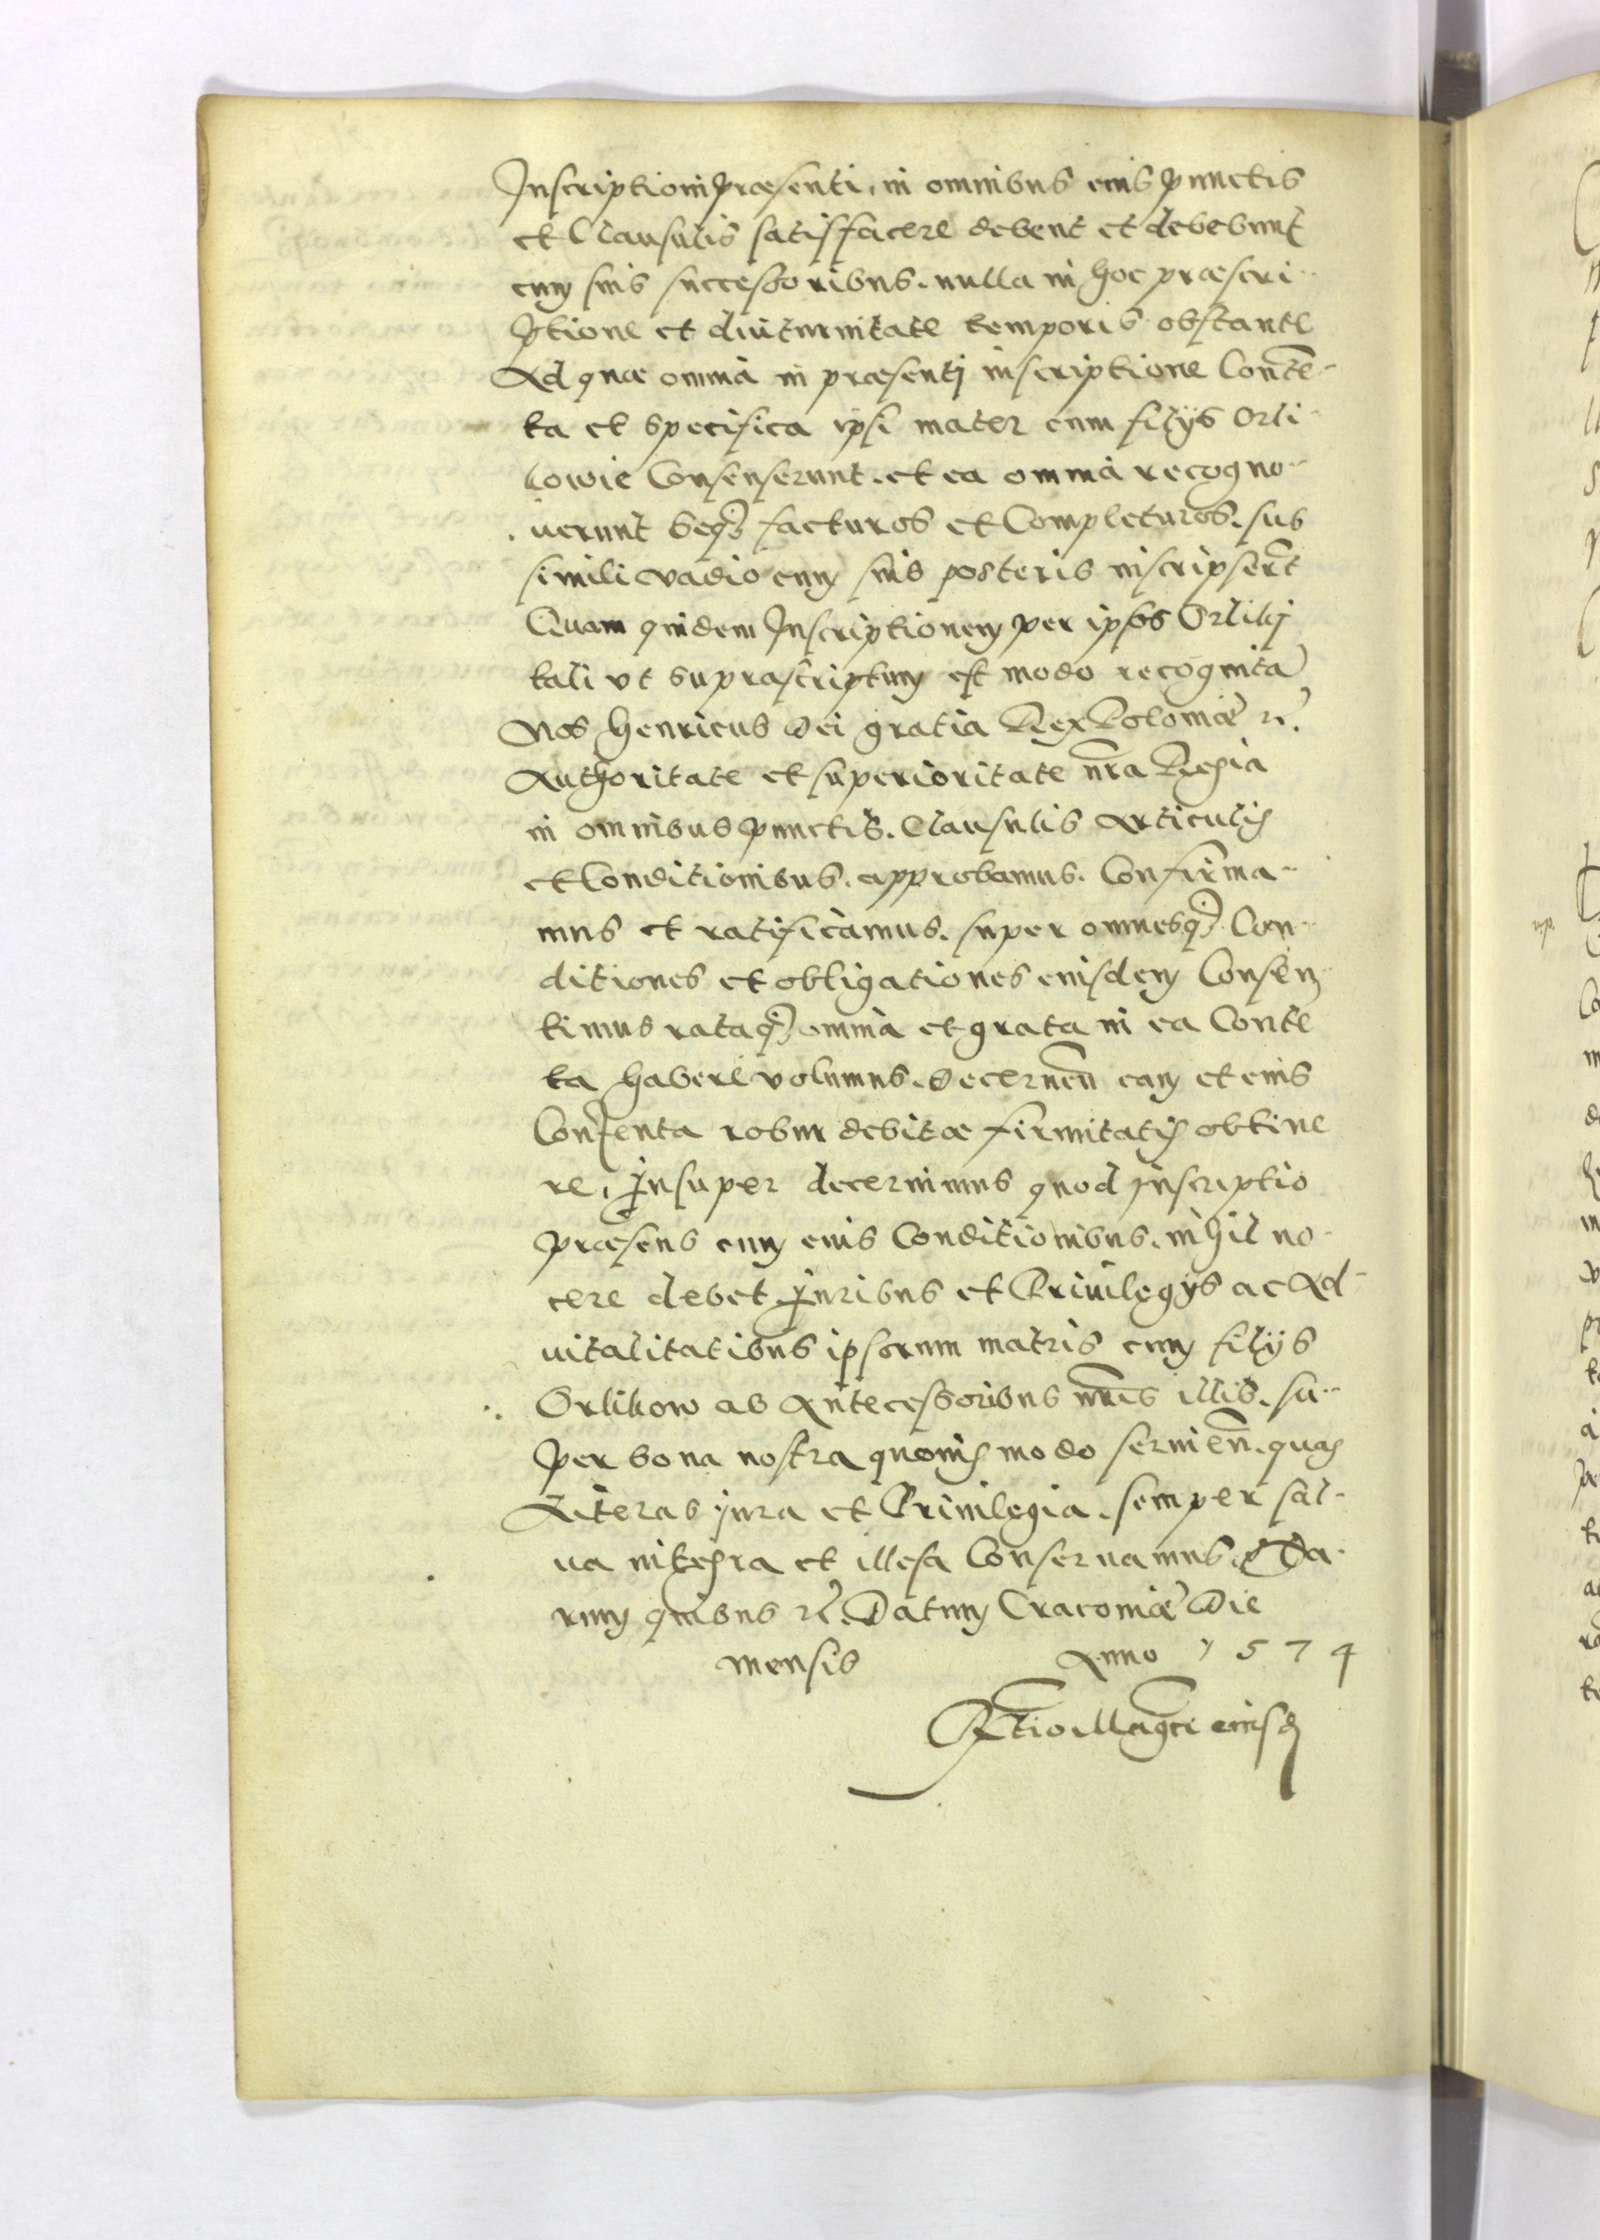 Inscriptioni præsenti, in omnibus eius punctis
et Clausulis satisffacere debent et debebunt
cum suis successoribus. nulla in hoc præscri-
ptione et diuturnitate temporis obstante
Ad quæ omnia in præsentj inscriptione Contē-
ta et specifica ipsi mater cum filijs Orli-
kowie Consenserunt. et ea omnia recogno-
uerunt seq3 facturos et Completuros. sub
simili vadio cum suis posteris inscripserūt
Quam quidem Inscriptionem per ipsos Orlikj
tali vt suprascriptum est modo recognitā
Nos Henricus Dei gratia Rex Poloniæ rc̃.
Authoritate et superioritate nr̃a Regia
in omnibus punctis. Clausulis Articulis
et Conditionibus. approbamus. Confirma-
mus et ratificamus. super omnesq3 Con-
ditiones et obligationes eiusdem Consen-
timus rataq3 omnia et grata in ea Contē
ta habere volumus. Decernen̄ eam et eius
Contenta robur debitæ firmitatis obtine
re, Insuper decernimus quod inscriptio
præsens cum eius Conditionibus. nihil no-
cere debet juribus et Priuilegijs ac Ad-
uitalitatibus ipsorum matris cum filijs
Orlikow ab Antecessoribus nr̄is illis. su-
per bona nostra quouis modo seruien̄. quas
Literas jura et Priuilegia. semper sal-
ua integra et illesa Conseruamus. Ha-
rum quibus rc̃. Datum Cracouiæ Die
mensis Anno 1574
Rtio Magci eiusd